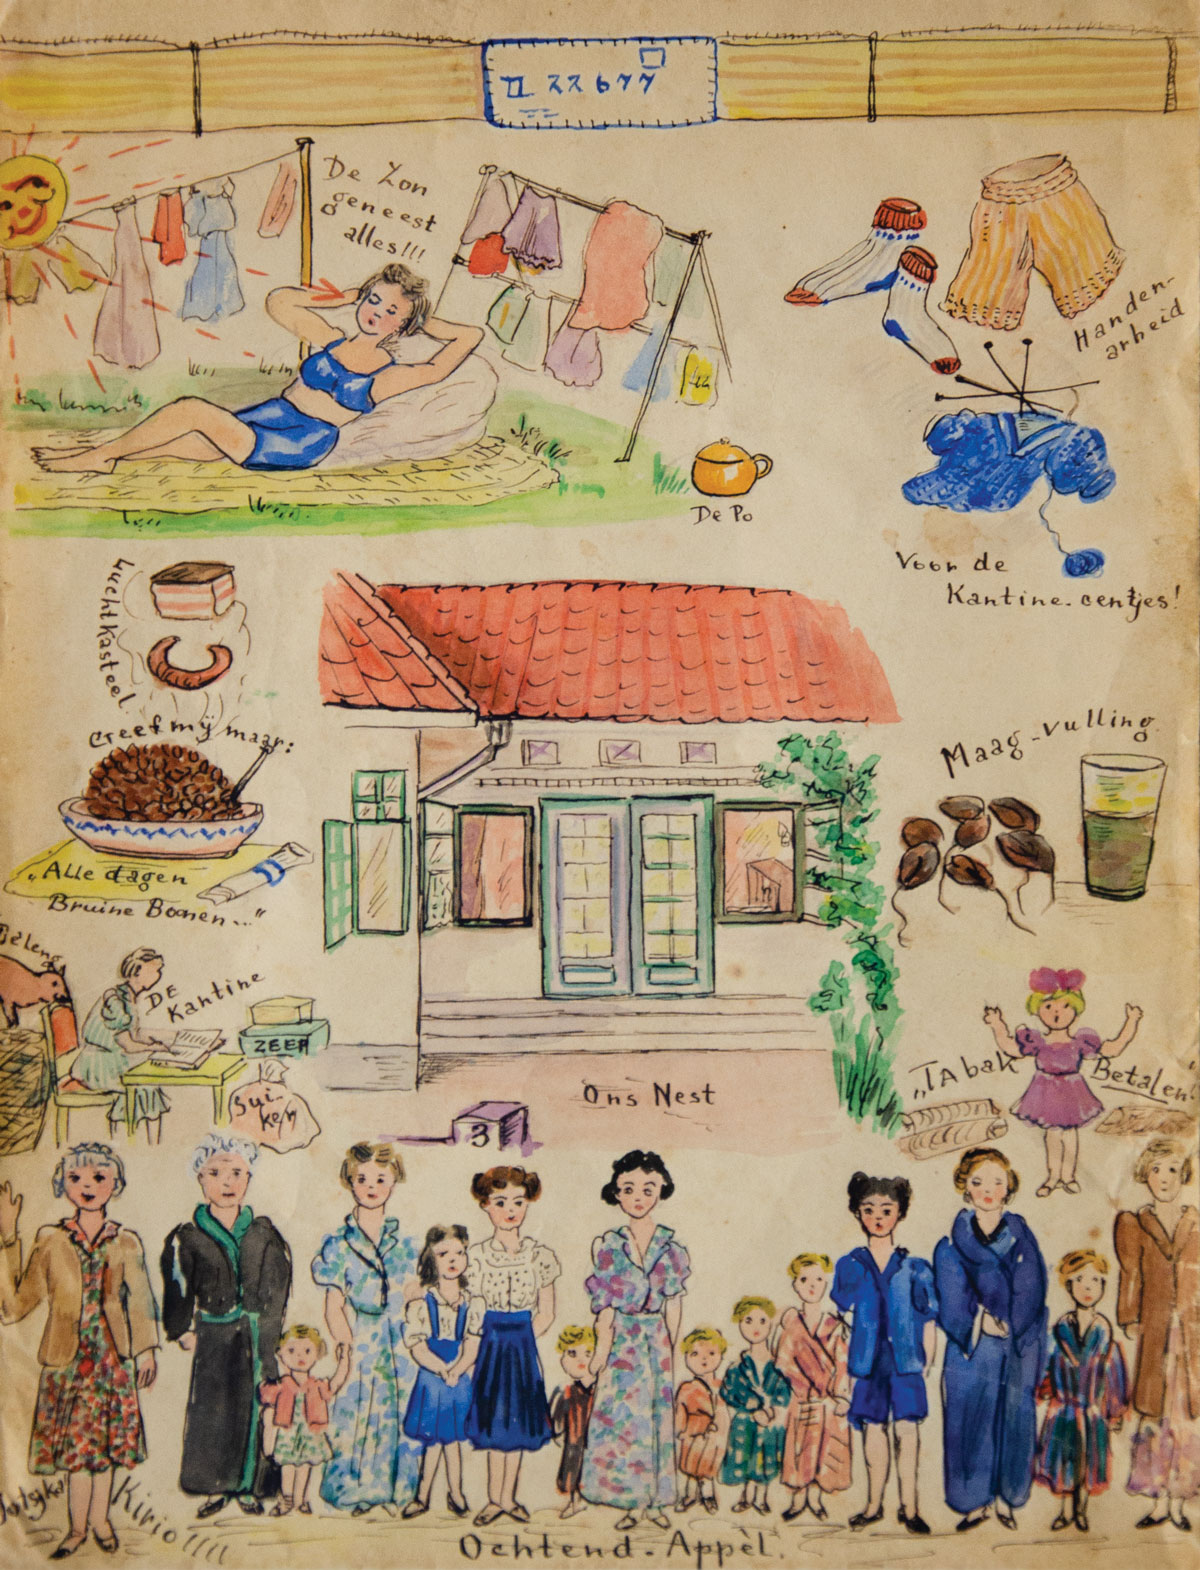 22677
De Zon
geneest
alles!!!
Handen-
arbeid
De Po
Voor de
Kantine-centjes!
Luchtkasteel
Geef mij maar:
„Alle dagen
Bruine Boonen..."
Maag-vulling
DE
Kantine
ZEEP
Sui-
ker
Ons Nest
3
„Tabak
Betalen"
Kirio!!!!
Ochtend-Appèl.